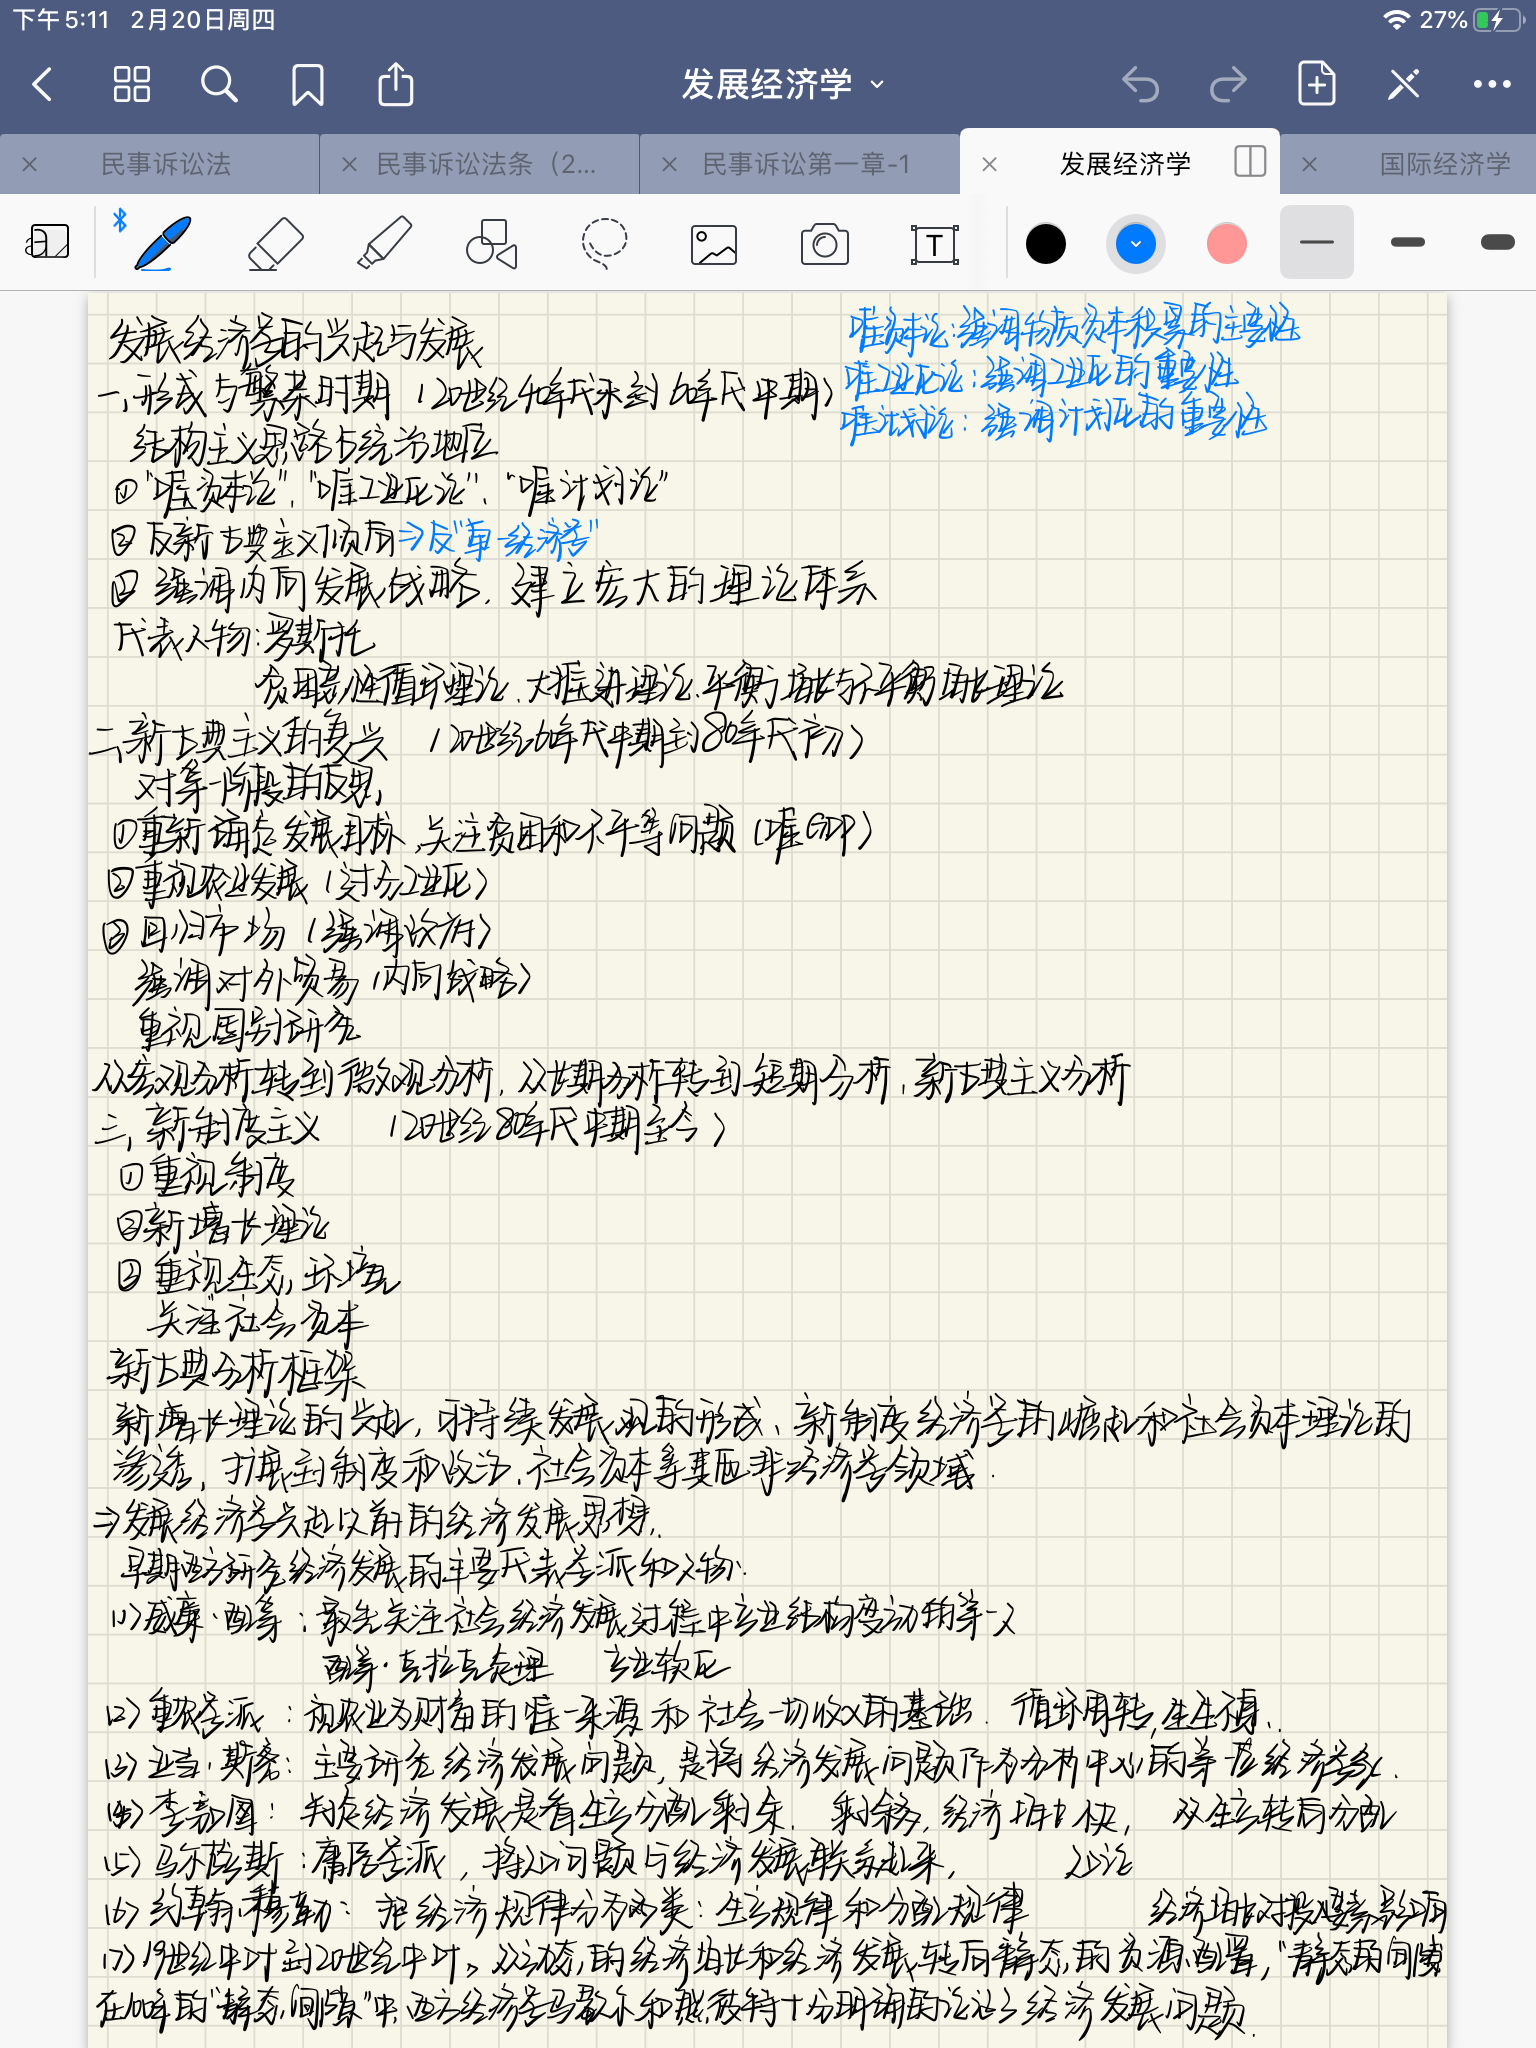 下午5:11 2月20日周四
27%
发展经济学
民事诉讼法
民事诉讼法条（2...
民事诉讼第一章-1
发展经济学
国际经济学
发展经济学的兴起与发展
唯资本论:强调物质资本积累的主要性
一,形成与繁荣时期 (20世纪40年代末到60年代中期)
唯工业化论:强调工业化的重要性
唯计划论:强调计划化的重要性
结构主义思路占统治地位
①"唯资本论"、"唯工业化论"、"唯计划论"
②反新古典主义倾向⇒反"单一经济学"
③强调内向发展战略,建立宏大的理论体系
代表人物:罗斯托
贫困恶性循环理论、大推进理论、平衡增长与不平衡增长理论
二,新古典主义的复兴 (20世纪60年代中期到80年代初)
对第一阶段的反思,
①重新确定发展目标,关注贫困和不平等问题(唯GDP)
②重视农业发展(过分工业化)
③回归市场(强调政府)
强调对外贸易(内向战略)
重视国别研究
从宏观分析转到微观分析,从长期分析转到短期分析,新古典主义分析
三,新制度主义 (20世纪80年代中期至今)
①重视制度
②新增长理论
③重视生态,环境
关注社会资本
新古典分析框架
新增长理论的兴起,可持续发展观的形成、新制度经济学的崛起和社会资本理论的
渗透,扩展到制度和政治、社会资本等非经济学领域.
⇒发展经济学兴起以前的经济发展思想.
早期西方研究经济发展的主要代表学派和人物.
(1)威廉·配第:最先关注社会经济发展过程中产业结构变动的第一人
配第·克拉克定理 产业软化
(2)重农学派:视农业为财富的唯一来源和社会一切收入的基础. 循环周转,生生不息.
(3)亚当·斯密:主要研究经济发展问题,是将经济发展问题作为分析中心的第一位经济学家.
(4)李嘉图:判定经济发展是看生产分配剩余. 剩余多,经济增长快, 从生产转向分配
(5)马尔萨斯:庸俗学派,将人口问题与经济发展联系起来, 人口论
(6)约翰·穆勒:把经济规律分为两类:生产规律和分配规律 经济增长对投入要素影响
(7)19世纪中叶到20世纪中叶。从动态的经济增长和经济发展,转向静态的资源配置,"静态的间隙
在100年的"静态间隙"中,西方经济学马歇尔和熊彼特十分明确的论述了经济发展问题.